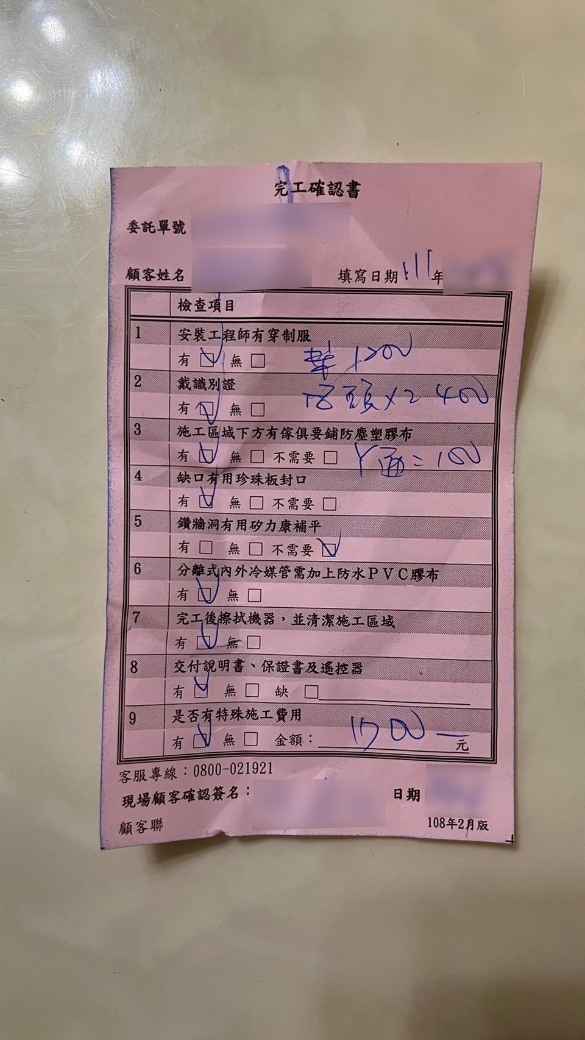 完工確認書
委託單號
顧客姓名 填寫日期 111年
檢查項目
1 安裝工程師有穿制服
有 ☑ 無 □ 架 1200
2 戴識別證
有 ☑ 無 □ 頭 x2 400
3 施工區域下方有傢俱要鋪防塵塑膠布
有 ☑ 無 □ 不需要 □ Y 面 = 100
4 缺口有用珍珠板封口
有 ☑ 無 □ 不需要 □
5 鑽牆洞有用矽力康補平
有 □ 無 □ 不需要 ☑
6 分離式內外冷媒管需加上防水PVC膠布
有 ☑ 無 □
7 完工後擦拭機器，並清潔施工區域
有 ☑ 無 □
8 交付說明書、保證書及遙控器
有 ☑ 無 □ 缺 □
9 是否有特殊施工費用
有 ☑ 無 □ 金額：1700 元
客服專線：0800-021921
現場顧客確認簽名： 日期
顧客聯 108年2月版